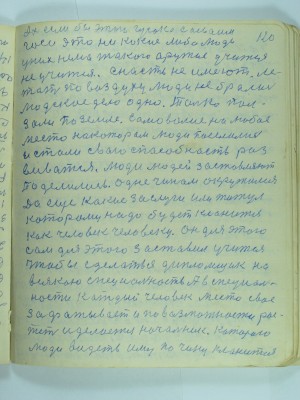 120
Ах если бы этого
гаси это ни какие либо люди
у них нема такого оружья учатся
не учатся. Снасти не имеют, ле-
тать по воздуху люди не брались
людское дело одно. Только пол-
зали по земле. самовольно на любое
место на котором люди поселились
и стали свою способность раз-
виваться. Люди людей заставляют
поделились. Одне чинам окружился
да еще какие заслуги или титул
которому надо будет кланятся
как человек человеку. Он для этого
сам для этого заставил учится
чтобы сделаться дипломщик на
всякою специальность. А в специаль-
ности каждый человек место свое
задатывает и по возможности рас-
тет и делается начальник. Которого
люди видеть ему по чину кланятся